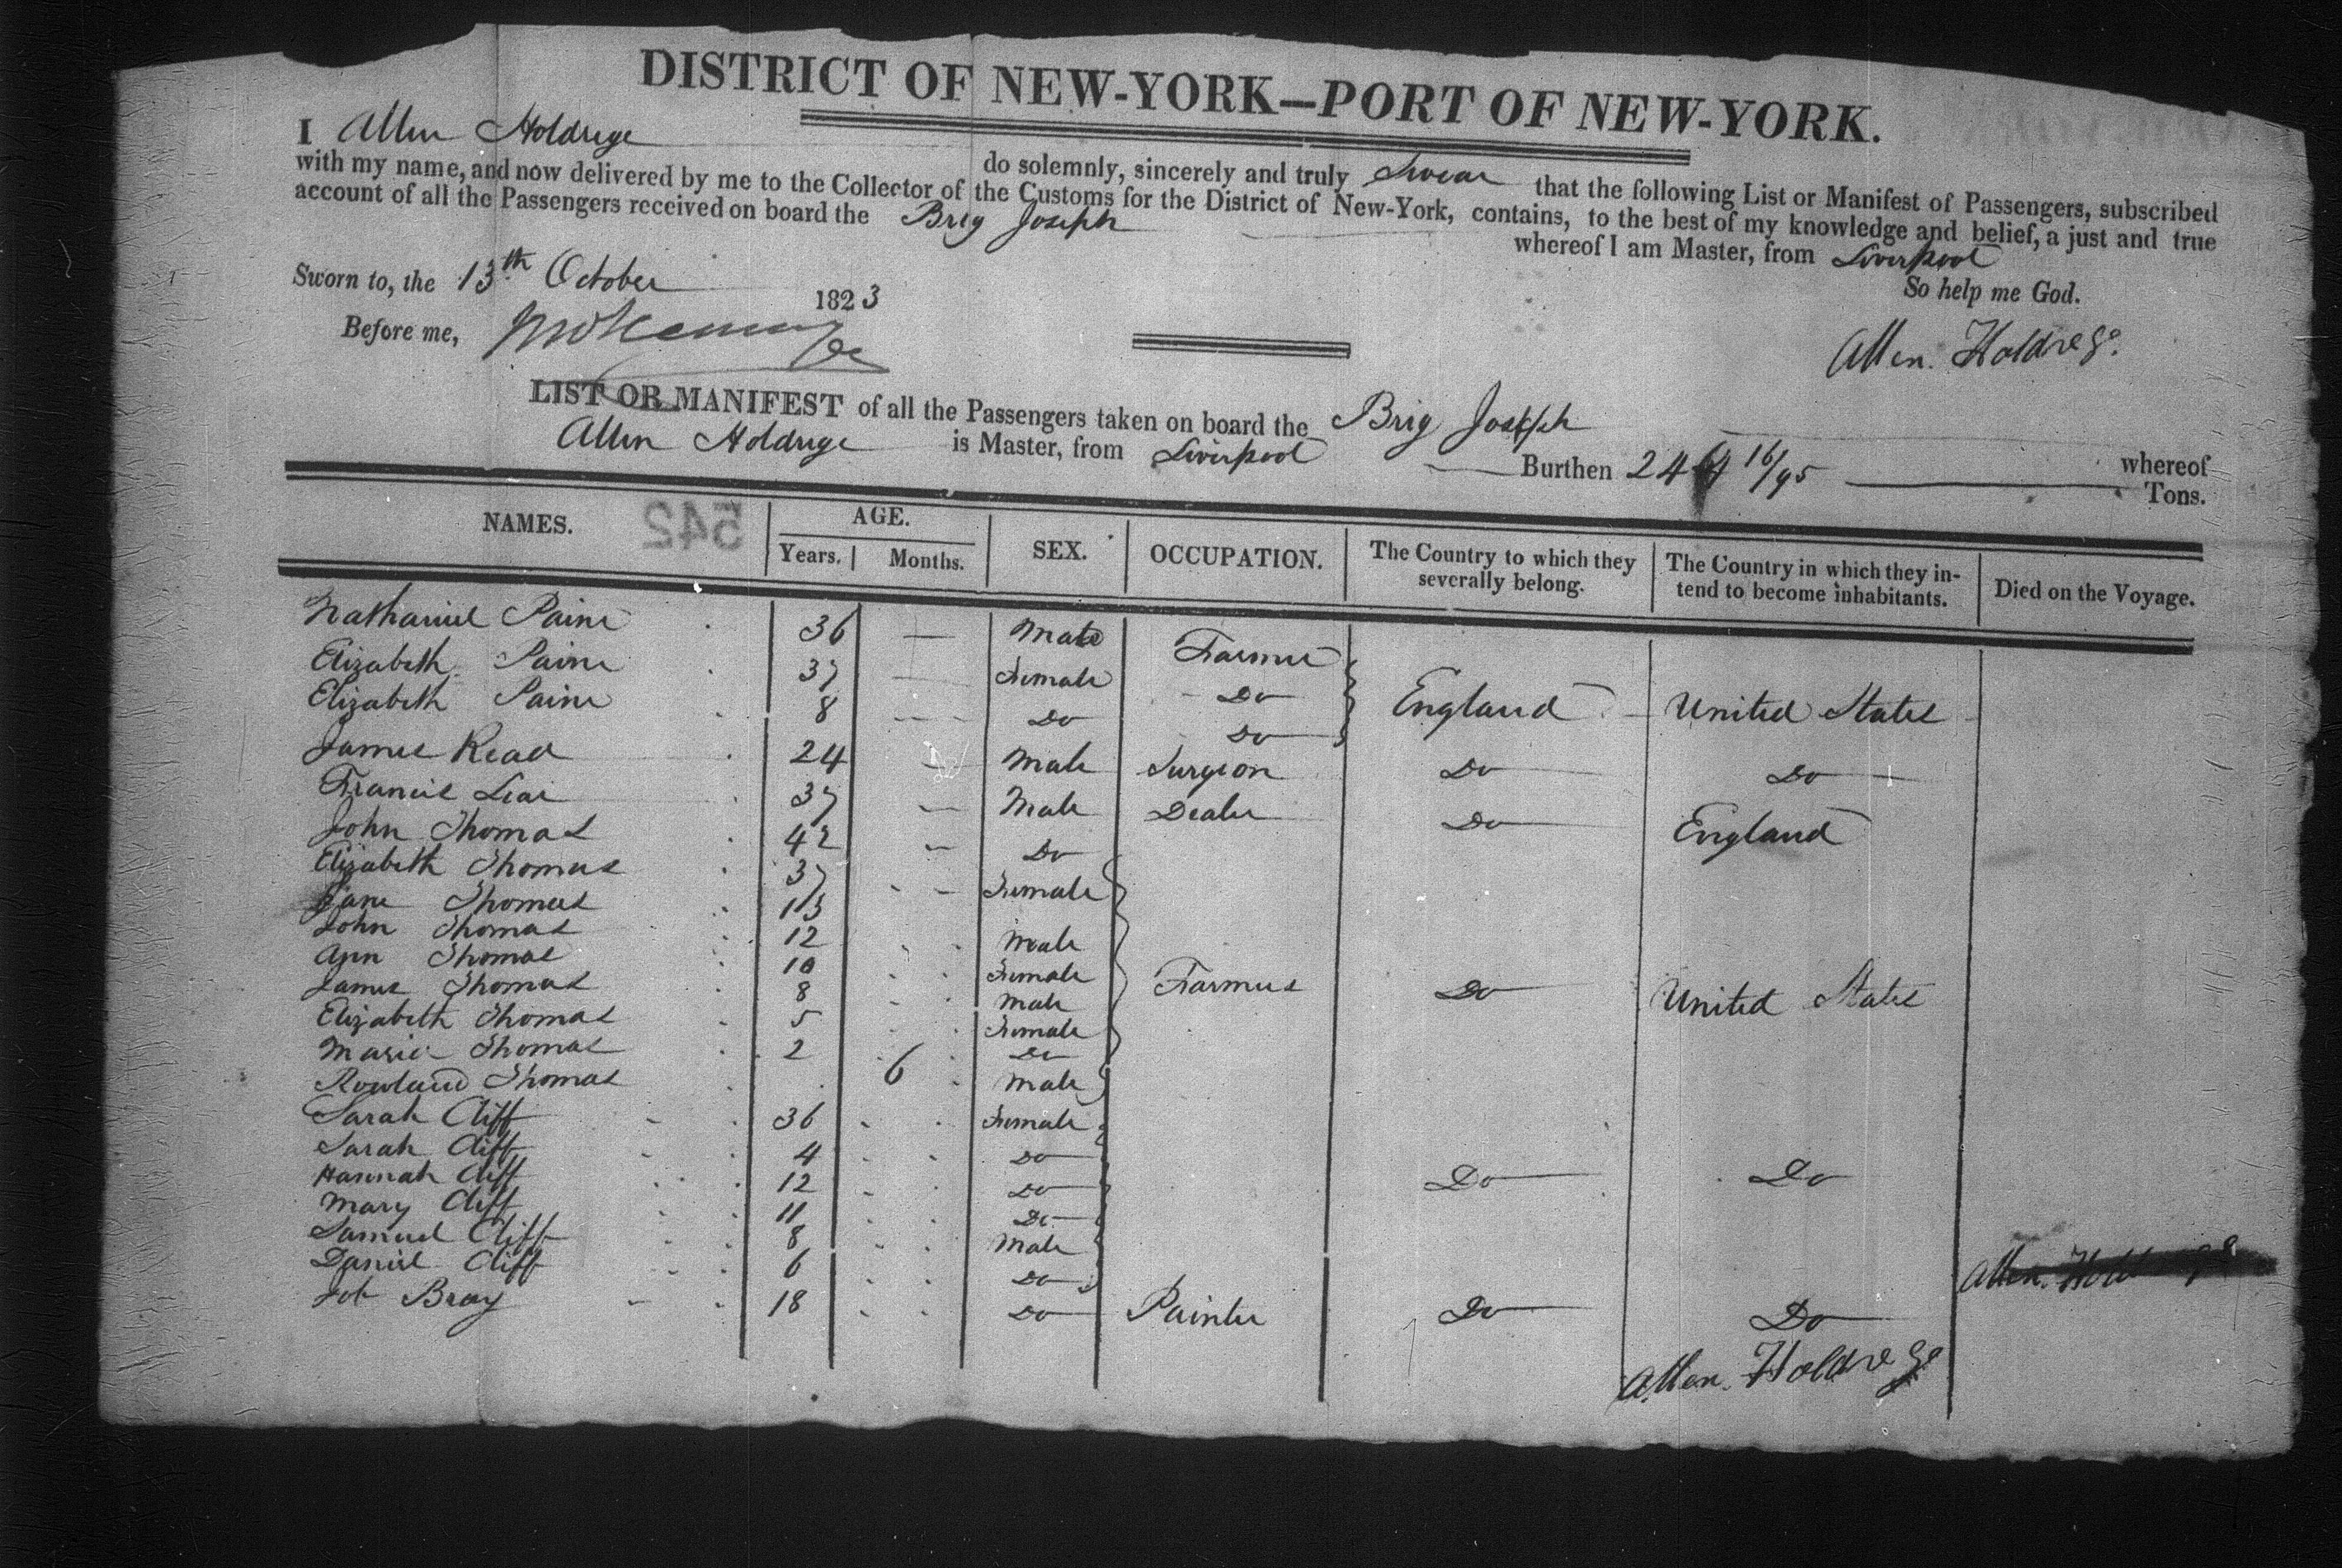 DISTRICT OF NEW-YORK—PORT OF NEW-YORK.
I Allen Holdrege do solemnly, sincerely and truly Swear that the following List or Manifest of Passengers, subscribed
with my name, and now delivered by me to the Collector of the Customs for the District of New-York, contains, to the best of my knowledge and belief, a just and true
account of all the Passengers received on board the Brig Joseph whereof I am Master, from Liverpool
Sworn to, the 13th October 1823 So help me God.
Before me, Allen. Holdrege.
LIST OR MANIFEST of all the Passengers taken on board the Brig Joseph whereof
Allen Holdrege is Master, from Liverpool Burthen 16/95 Tons.
NAMES. 542 AGE. SEX. OCCUPATION. The Country to which they severally belong. The Country in which they intend to become inhabitants. Died on the Voyage.
Years. Months.
Nathaniel Paine 36 — Male Farmer
Elizabeth Paine 37 — Female Do England United States
Elizabeth Paine 8 — Do Do
James Read 24 — Male Surgeon Do Do
Francis 37 — Male Dealer Do England
John Thomas 42 — Do
Elizabeth Thomas 37 - - Female
Jane Thomas 13
John Thomas 12 Male
Ann Thomas 10 Female
James Thomas 8 Male Farmers Do United States
Elizabeth Thomas 5 Female
Maria Thomas 2 Do
Rowland Thomas 6 Male
Sarah Cliff 36 Female
Sarah Cliff 4 Do
Hannah Cliff 12 Do Do Do
Mary Cliff 11 Do
Samuel Cliff 8 Male
Daniel Cliff 6 Do Allen. Holdrege
Job Bray 18 Do Painter Do Do
Allen. Holdrege